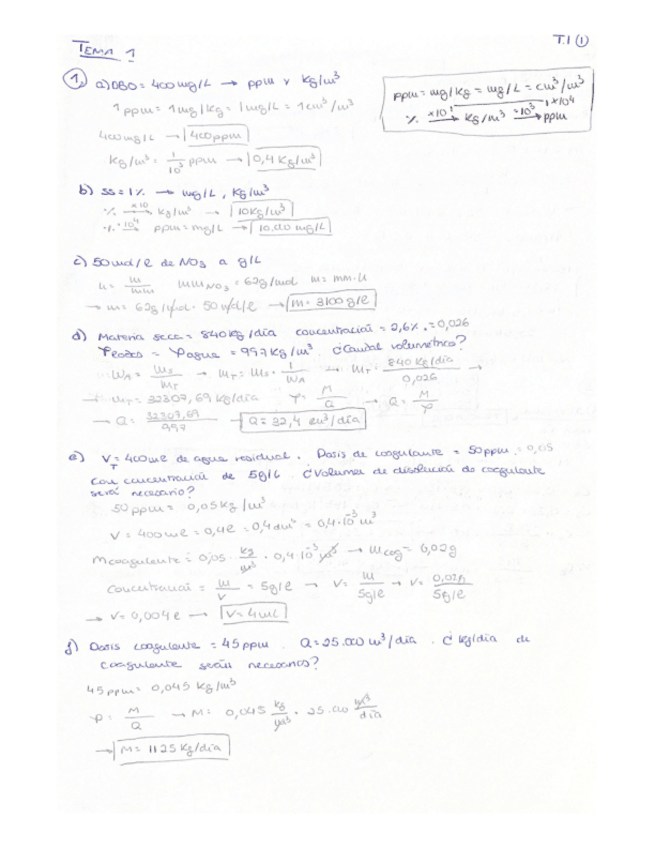 T.1 ①
TEMA 1
ppm = mg/kg = mg/L = cm³/m³
% —x10→ kg/m³ —x10³→ ppm
x10⁴
1. a) DBO = 400 mg/L → ppm y kg/m³
1 ppm = 1 mg/kg = 1 mg/L = 1 cm³/m³
400 mg/L → 400 ppm
kg/m³ = 1/10³ ppm → 0,4 kg/m³
b) SS = 1% → mg/L, kg/m³
% —x10→ kg/m³ → 10 kg/m³
% —·10⁴→ ppm = mg/L → 10.000 mg/L
c) 50 mol/l de NO₃ a g/L
n = m/mm mm NO₃ = 62 g/mol m = mm·n
→ m = 62 g/mol · 50 mol/l → m = 3100 g/l
d) Materia seca = 840 kg/día concentración = 2,6% = 0,026
ρ = ρagua = 997 kg/m³. ¿Caudal volumétrico?
→ mT = 840 kg/día / 0,026 →
→ mT = 32307,69 kg/día ρ = M/Q → Q = M/ρ
→ Q = 32307,69/997 → Q = 32,4 m³/día
e) VT = 400 ml de agua residual. Dosis de coagulante = 50 ppm = 0,05
con concentración de 5 g/L. ¿Volumen de disolución de coagulante
será necesario?
50 ppm = 0,05 kg/m³
V = 400 ml = 0,4 l = 0,4 dm³ = 0,4·10⁻³ m³
m coagulante = 0,05 kg/m³ · 0,4·10⁻³ m³ → m cog = 0,02 g
Concentración = m/V = 5 g/l → V = m/5g/l → V = 0,02g/5g/l
→ V = 0,004 l → V = 4 ml
f) Dosis coagulante = 45 ppm. Q = 25.000 m³/día. ¿kg/día de
coagulante serán necesarios?
45 ppm = 0,045 kg/m³
ρ = M/Q → M = 0,045 kg/m³ · 25.000 m³/día
→ M = 1125 kg/día